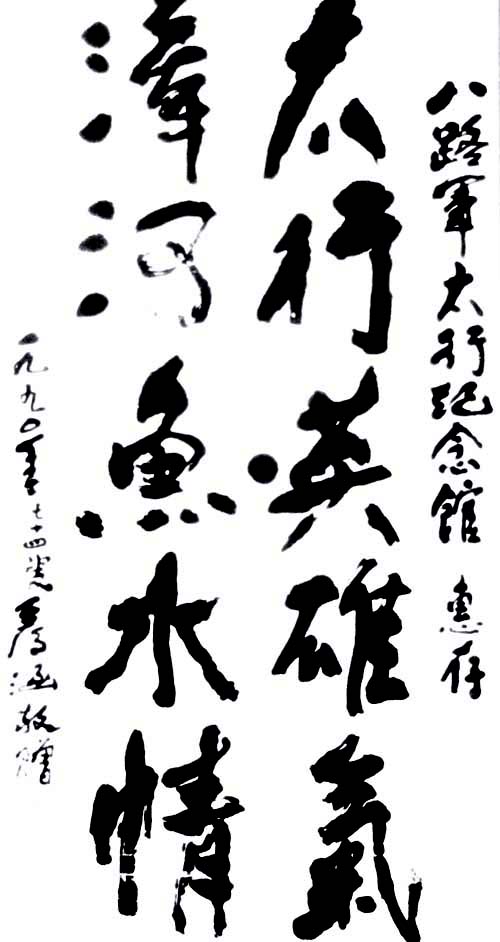 八路军太行纪念馆 惠存
太行英雄氣
漳河魚水情
一九九〇年七十四叟
敬赠